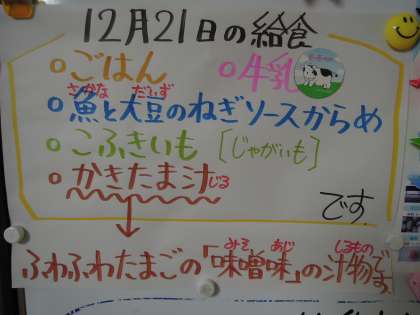 12月21日の給食
○ごはん ○牛乳
さかな だいず
○魚と大豆のねぎソースからめ
○こふきいも [じゃがいも]
○かきたま汁 じる
です。
みそ あじ しるもの
ふわふわたまごの「味噌味」の汁物です。